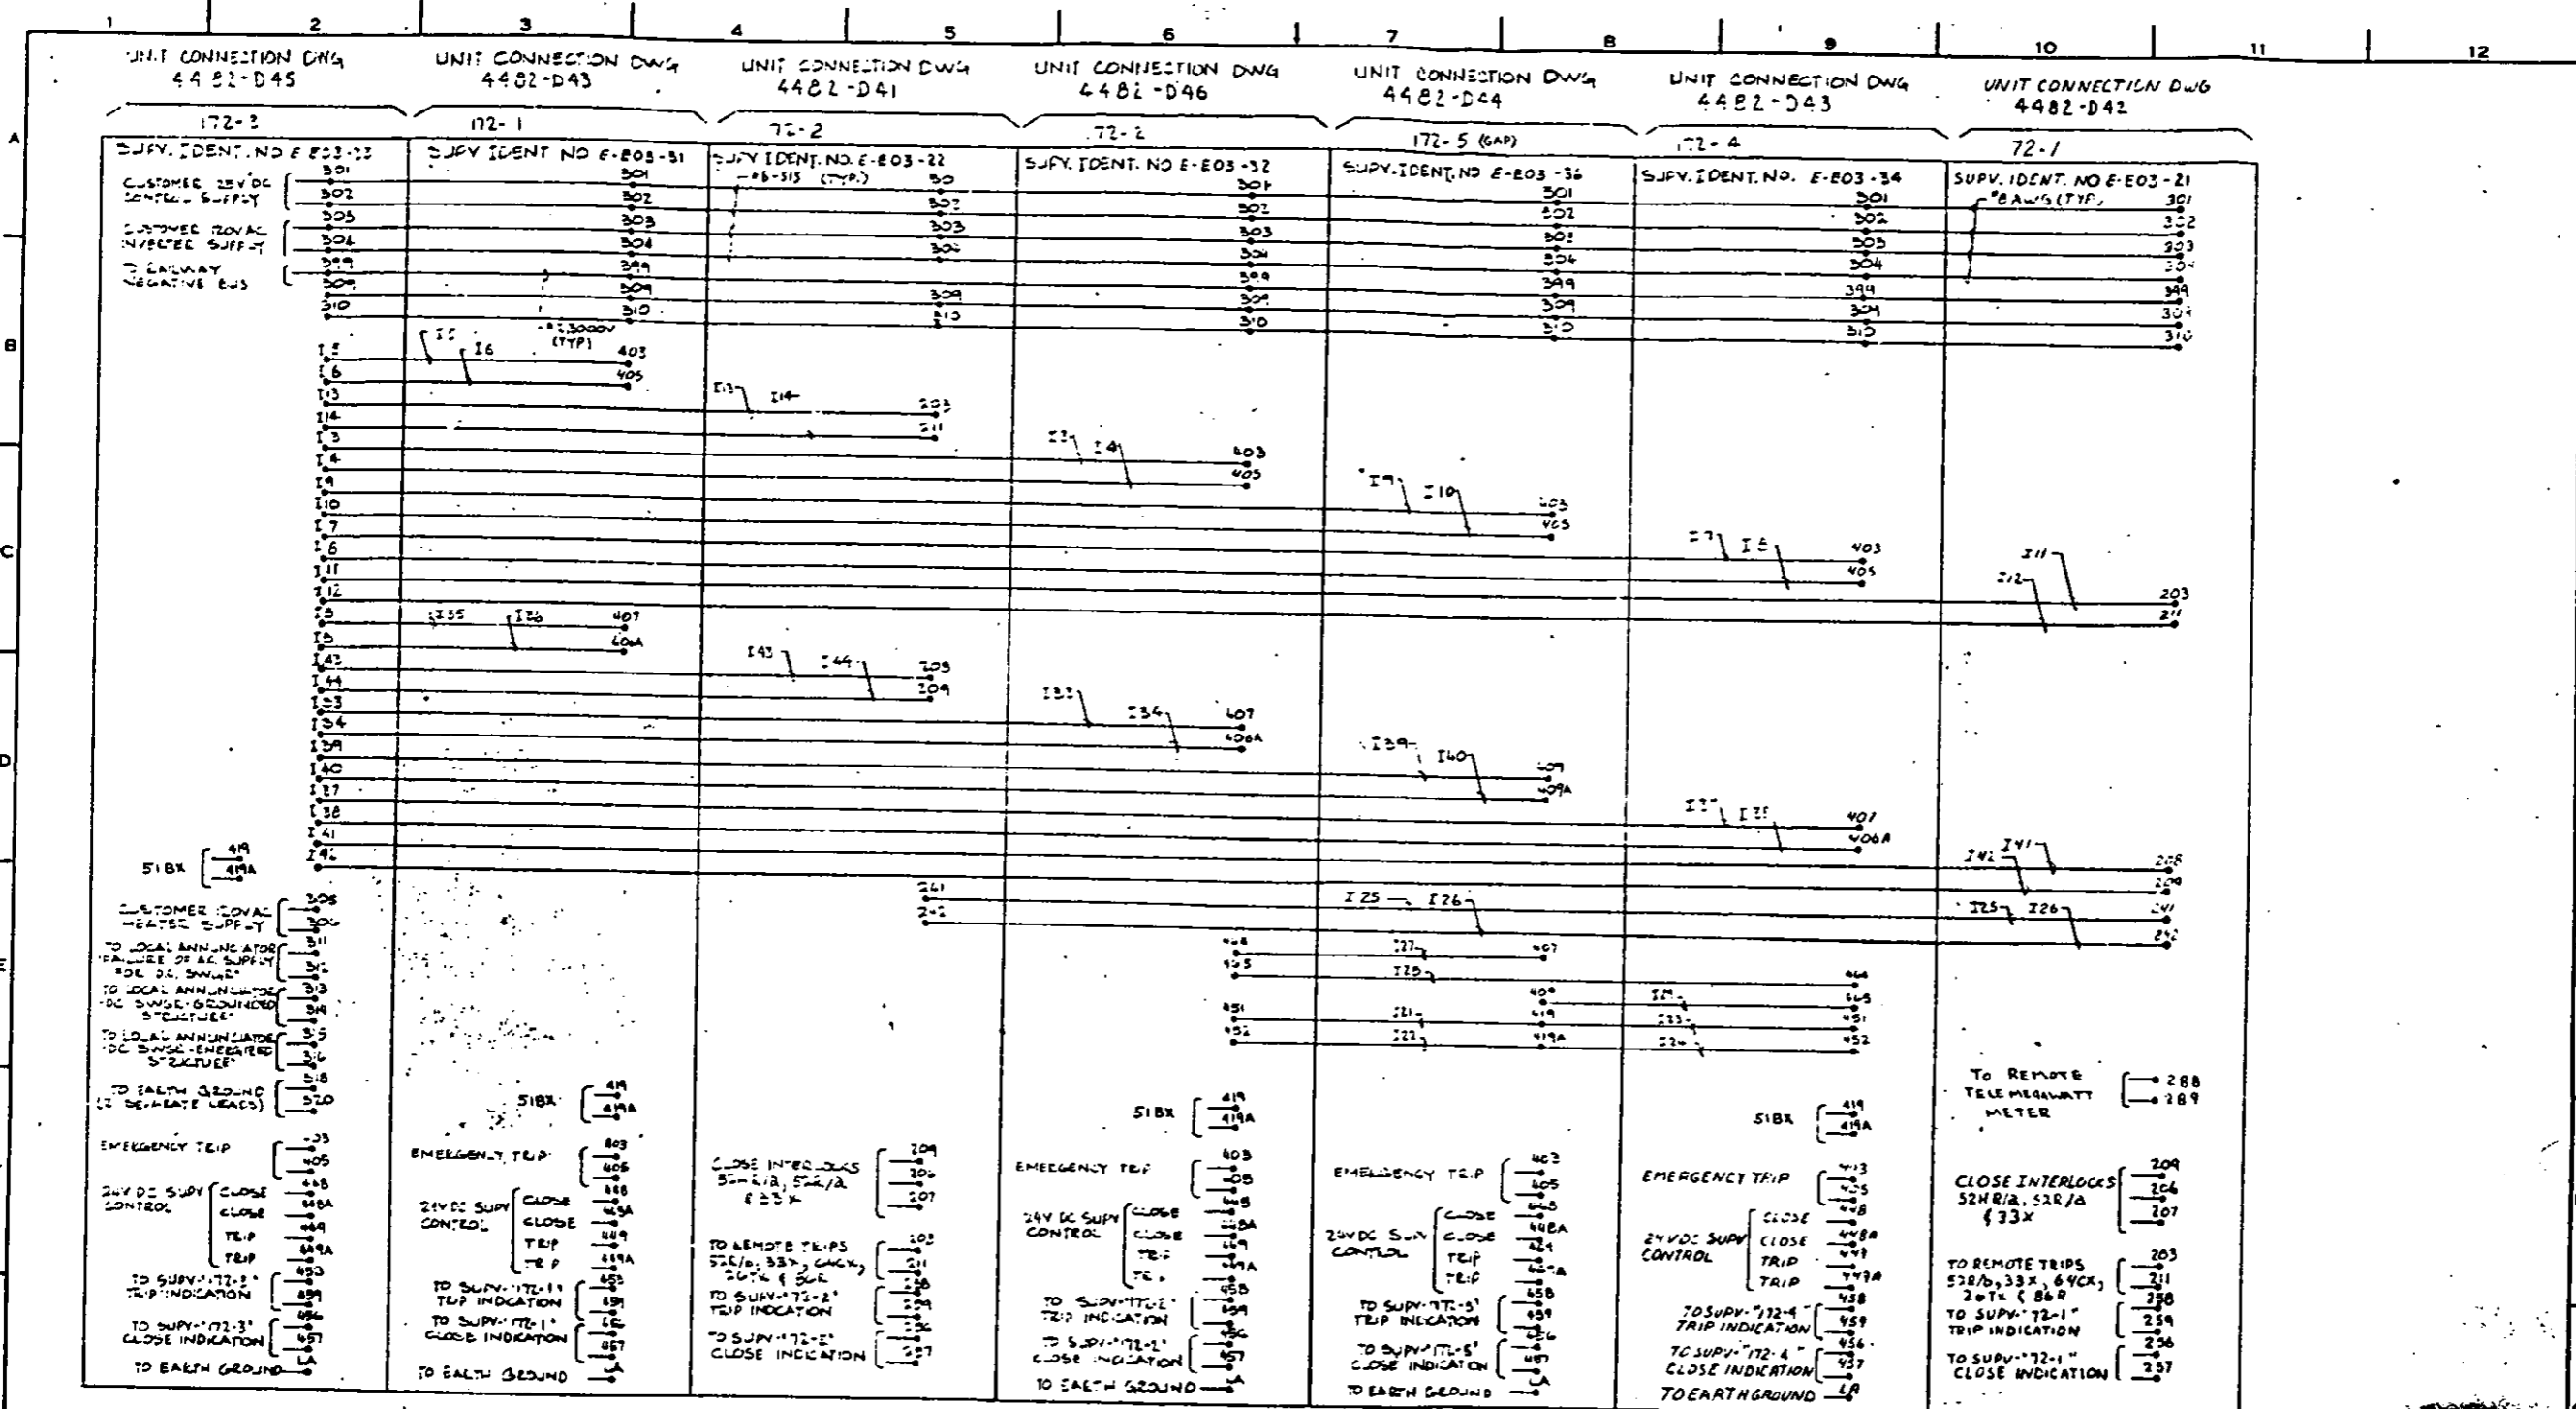 1 2 3 4 5 6 7 8 9 10 11 12
UNIT CONNECTION DWG
4482-D45
UNIT CONNECTION DWG
4482-D43
UNIT CONNECTION DWG
4482-D41
UNIT CONNECTION DWG
4482-D46
UNIT CONNECTION DWG
4482-D44
UNIT CONNECTION DWG
4482-D43
UNIT CONNECTION DWG
4482-D42
A
B
C
D
E
172-3
SUPV. IDENT. NO E E03-33
CUSTOMER 125V DC
CONTROL SUPPLY
301
302
CUSTOMER 120VAC
INVERTER SUPPLY
303
304
TO RAILWAY
NEGATIVE BUS
399
309
310
I5
I6
I13
I14
I3
I4
I9
I10
I7
I8
I11
I12
I43
I44
I33
I34
I39
I40
I37
I38
I41
51BX
419
419A
CUSTOMER 120VAC
HEATER SUPPLY
305
306
TO LOCAL ANNUNCIATOR
"FAILURE OF AC SUPPLY
FOR DC SWGR"
311
312
TO LOCAL ANNUNCIATOR
"DC SWGR-GROUNDED
STRUCTURE"
313
314
TO LOCAL ANNUNCIATOR
"DC SWGR-ENERGIZED
STRUCTURE"
315
316
TO EARTH GROUND
(2 SEPARATE LEADS)
318
320
EMERGENCY TRIP
405
24V DC SUPV
CONTROL
CLOSE 448
CLOSE 448A
TRIP 449
TRIP 449A
TO SUPV-"172-3"
TRIP INDICATION
459
TO SUPV-"172-3"
CLOSE INDICATION
456
457
TO EARTH GROUND LA
172-1
SUPV IDENT NO E-E03-31
301
302
303
304
399
309
310
#2,3000V
(TYP)
I5
I6
403
405
I35
I36
407
406A
51BX
419
419A
EMERGENCY TRIP
403
405
24V DC SUPV
CONTROL
CLOSE 448
CLOSE 448A
TRIP 449
TRIP 449A
TO SUPV-"172-1"
TRIP INDICATION
459
TO SUPV-"172-1"
CLOSE INDICATION
456
457
TO EARTH GROUND LA
72-2
SUPV IDENT. NO. E-E03-22
#6-SIS (TYP.)
302
303
304
309
310
I13
I14
203
211
I43
I44
208
209
241
242
CLOSE INTERLOCKS
52HR/a, 52R/a
& 33X
209
206
207
TO REMOTE TRIPS
52R/b, 33X, 64CX,
26TX & 86R
203
211
TO SUPV-"72-2"
TRIP INDICATION
258
259
TO SUPV-"72-2"
CLOSE INDICATION
256
257
172-2
SUPV. IDENT. NO E-E03-32
301
302
303
304
399
309
310
I3
I4
403
405
I33
I34
407
406A
464
465
451
452
51BX
419
419A
EMERGENCY TRIP
403
405
24V DC SUPV
CONTROL
CLOSE 448
CLOSE 448A
TRIP 449
TRIP 449A
TO SUPV-"172-2"
TRIP INDICATION
458
459
TO SUPV-"172-2"
CLOSE INDICATION
456
457
TO EARTH GROUND LA
172-5 (GAP)
SUPV. IDENT. NO E-E03-36
301
302
303
304
399
309
310
I9
I10
403
405
I39
I40
409
409A
I25
I26
I27
407
I25
409
I21
419
I22
419A
EMERGENCY TRIP
403
405
24VDC SUPV
CONTROL
CLOSE 448
CLOSE 448A
TRIP 449
TRIP 449A
TO SUPV-"172-5"
TRIP INDICATION
458
459
TO SUPV-"172-5"
CLOSE INDICATION
456
457
TO EARTH GROUND LA
172-4
SUPV. IDENT. NO. E-E03-34
301
302
303
304
399
309
310
I7
I8
403
405
I37
I38
407
406A
464
465
I23
451
I24
452
51BX
419
419A
EMERGENCY TRIP
403
405
24VDC SUPV
CONTROL
CLOSE 448
CLOSE 448A
TRIP 449
TRIP 449A
TO SUPV-"172-4"
TRIP INDICATION
458
459
TO SUPV-"172-4"
CLOSE INDICATION
456
457
TO EARTH GROUND LA
72-1
SUPV. IDENT. NO E-E03-21
#8 AWG (TYP)
301
302
303
304
399
309
310
I11
I12
203
211
I41
I42
208
209
I25
I26
241
242
TO REMOTE
TELE MEGAWATT
METER
288
289
CLOSE INTERLOCKS
52HR/a, 52R/a
& 33X
209
206
207
TO REMOTE TRIPS
52R/b, 33X, 64CX,
26TX & 86R
203
211
TO SUPV-"72-1"
TRIP INDICATION
258
259
TO SUPV-"72-1"
CLOSE INDICATION
256
257